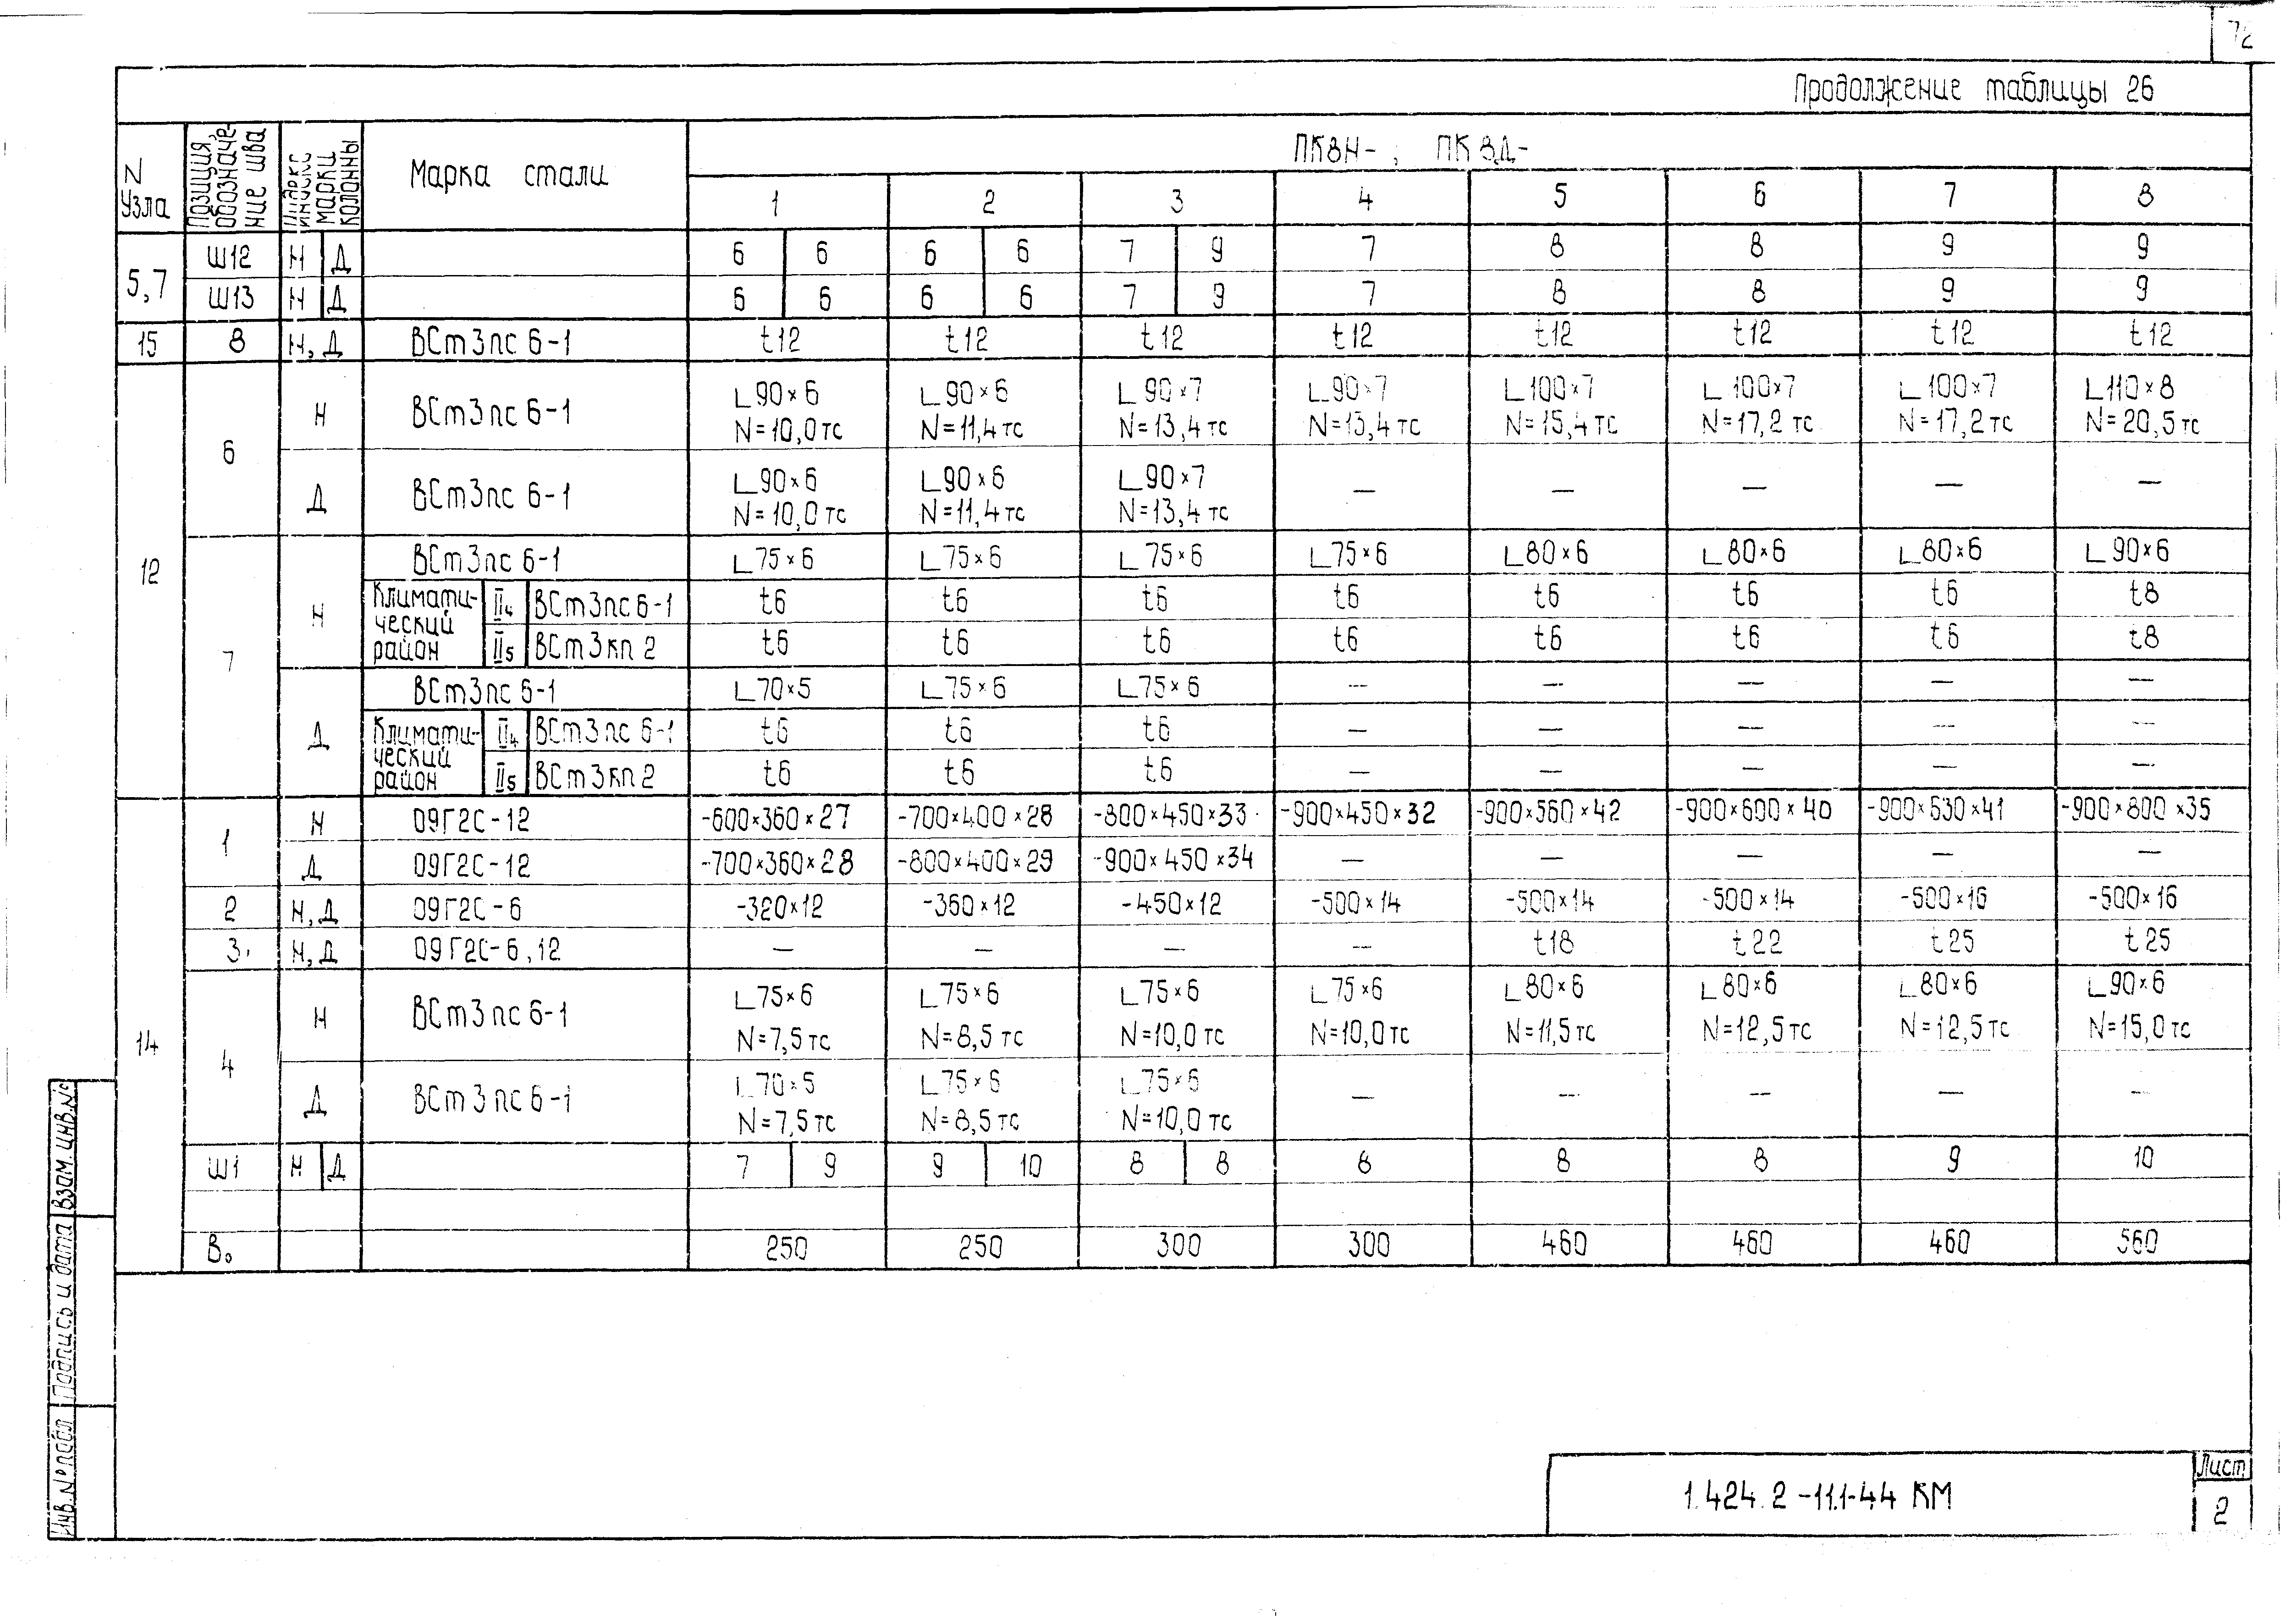 72
Продолжение таблицы 26
N Узла | Позиция, обозначе- ние шва | Индекс марки колонны | Марка стали | ПК8Н- ; ПК8Д-
1 | 2 | 3 | 4 | 5 | 6 | 7 | 8
5,7 | Ш12 | Н | Д | 6 | 6 | 6 | 6 | 7 | 9 | 7 | 8 | 8 | 9 | 9
Ш13 | Н | Д | 6 | 6 | 6 | 6 | 7 | 9 | 7 | 8 | 8 | 9 | 9
15 | 8 | Н, Д | ВСт3пс 6-1 | t12 | t12 | t12 | t12 | t12 | t12 | t12 | t12
12 | 6 | Н | ВСт3пс 6-1 | ∟90×6 | ∟90×6 | ∟90×7 | ∟90×7 | ∟100×7 | ∟100×7 | ∟100×7 | ∟110×8
N=10,0тс | N=11,4тс | N=13,4тс | N=13,4тс | N=15,4тс | N=17,2тс | N=17,2тс | N=20,5тс
Д | ВСт3пс 6-1 | ∟90×6 | ∟90×6 | ∟90×7 | — | — | — | — | —
N=10,0тс | N=11,4тс | N=13,4тс
7 | Н | ВСт3пс 6-1 | ∟75×6 | ∟75×6 | ∟75×6 | ∟75×6 | ∟80×6 | ∟80×6 | ∟80×6 | ∟90×6
Климати- ческий район | II₄ | ВСт3пс6-1 | t6 | t6 | t6 | t6 | t6 | t6 | t6 | t8
II₅ | ВСт3кп 2 | t6 | t6 | t6 | t6 | t6 | t6 | t6 | t8
Д | ВСт3пс 6-1 | ∟70×5 | ∟75×6 | ∟75×6 | — | — | — | — | —
Климати- ческий район | II₄ | ВСт3пс 6-1 | t6 | t6 | t6 | — | — | — | — | —
II₅ | ВСт3кп 2 | t6 | t6 | t6 | — | — | — | — | —
14 | 1 | Н | 09Г2С-12 | -600×360×27 | -700×400×28 | -800×450×33 | -900×450×32 | -900×560×42 | -900×600×40 | -900×630×41 | -900×800×35
Д | 09Г2С-12 | -700×360×28 | -800×400×29 | -900×450×34 | — | — | — | — | —
2 | Н, Д | 09Г2С-6 | -320×12 | -360×12 | -450×12 | -500×14 | -500×14 | -500×14 | -500×16 | -500×16
3 | Н, Д | 09Г2С-6,12 | — | — | — | — | t18 | t22 | t25 | t25
4 | Н | ВСт3пс 6-1 | ∟75×6 | ∟75×6 | ∟75×6 | ∟75×6 | ∟80×6 | ∟80×6 | ∟80×6 | ∟90×6
N=7,5тс | N=8,5тс | N=10,0тс | N=10,0тс | N=11,5тс | N=12,5тс | N=12,5тс | N=15,0тс
Д | ВСт3пс 6-1 | ∟70×5 | ∟75×6 | ∟75×6 | — | — | — | — | —
N=7,5тс | N=8,5тс | N=10,0тс
Ш1 | Н | Д | 7 | 9 | 9 | 10 | 8 | 8 | 8 | 8 | 8 | 9 | 10
В₀ | 250 | 250 | 300 | 300 | 460 | 460 | 460 | 560
Инв.№подл | Подпись и дата | Взам.инв.№
1.424.2-11.1-44 КМ
Лист
2